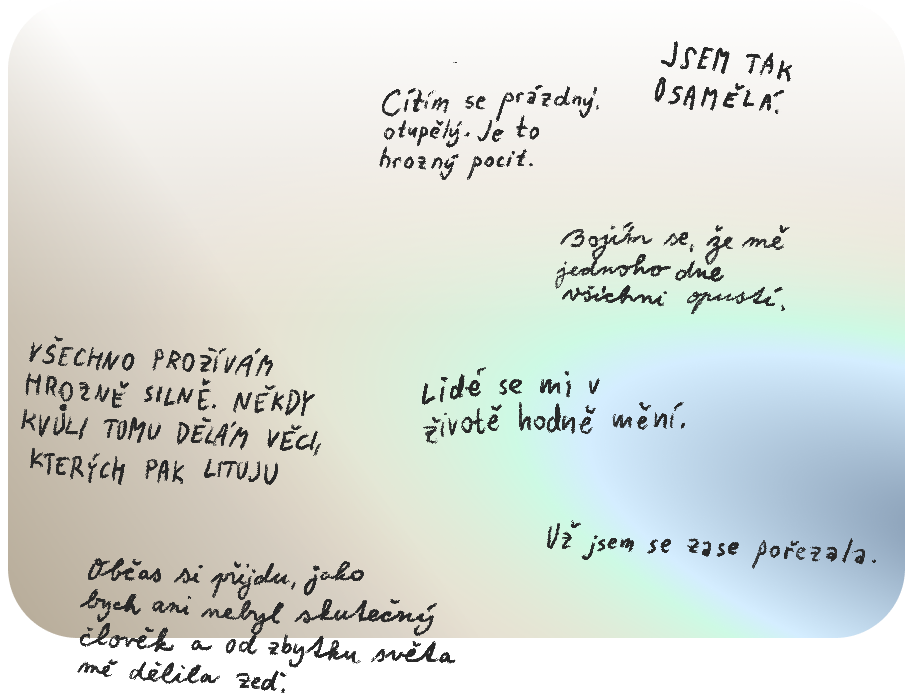 JSEM TAK
OSAMĚLÁ.
Cítím se prázdný,
otupělý. Je to
hrozný pocit.
Bojím se, že mě
jednoho dne
všichni opustí.
VŠECHNO PROŽÍVÁM
HROZNĚ SILNĚ. NĚKDY
KVŮLI TOMU DĚLÁM VĚCI,
KTERÝCH PAK LITUJU
Lidé se mi v
životě hodně mění.
Už jsem se zase pořezala.
Občas si přijdu, jako
bych ani nebyl skutečný
člověk a od zbytku světa
mě dělila zeď.